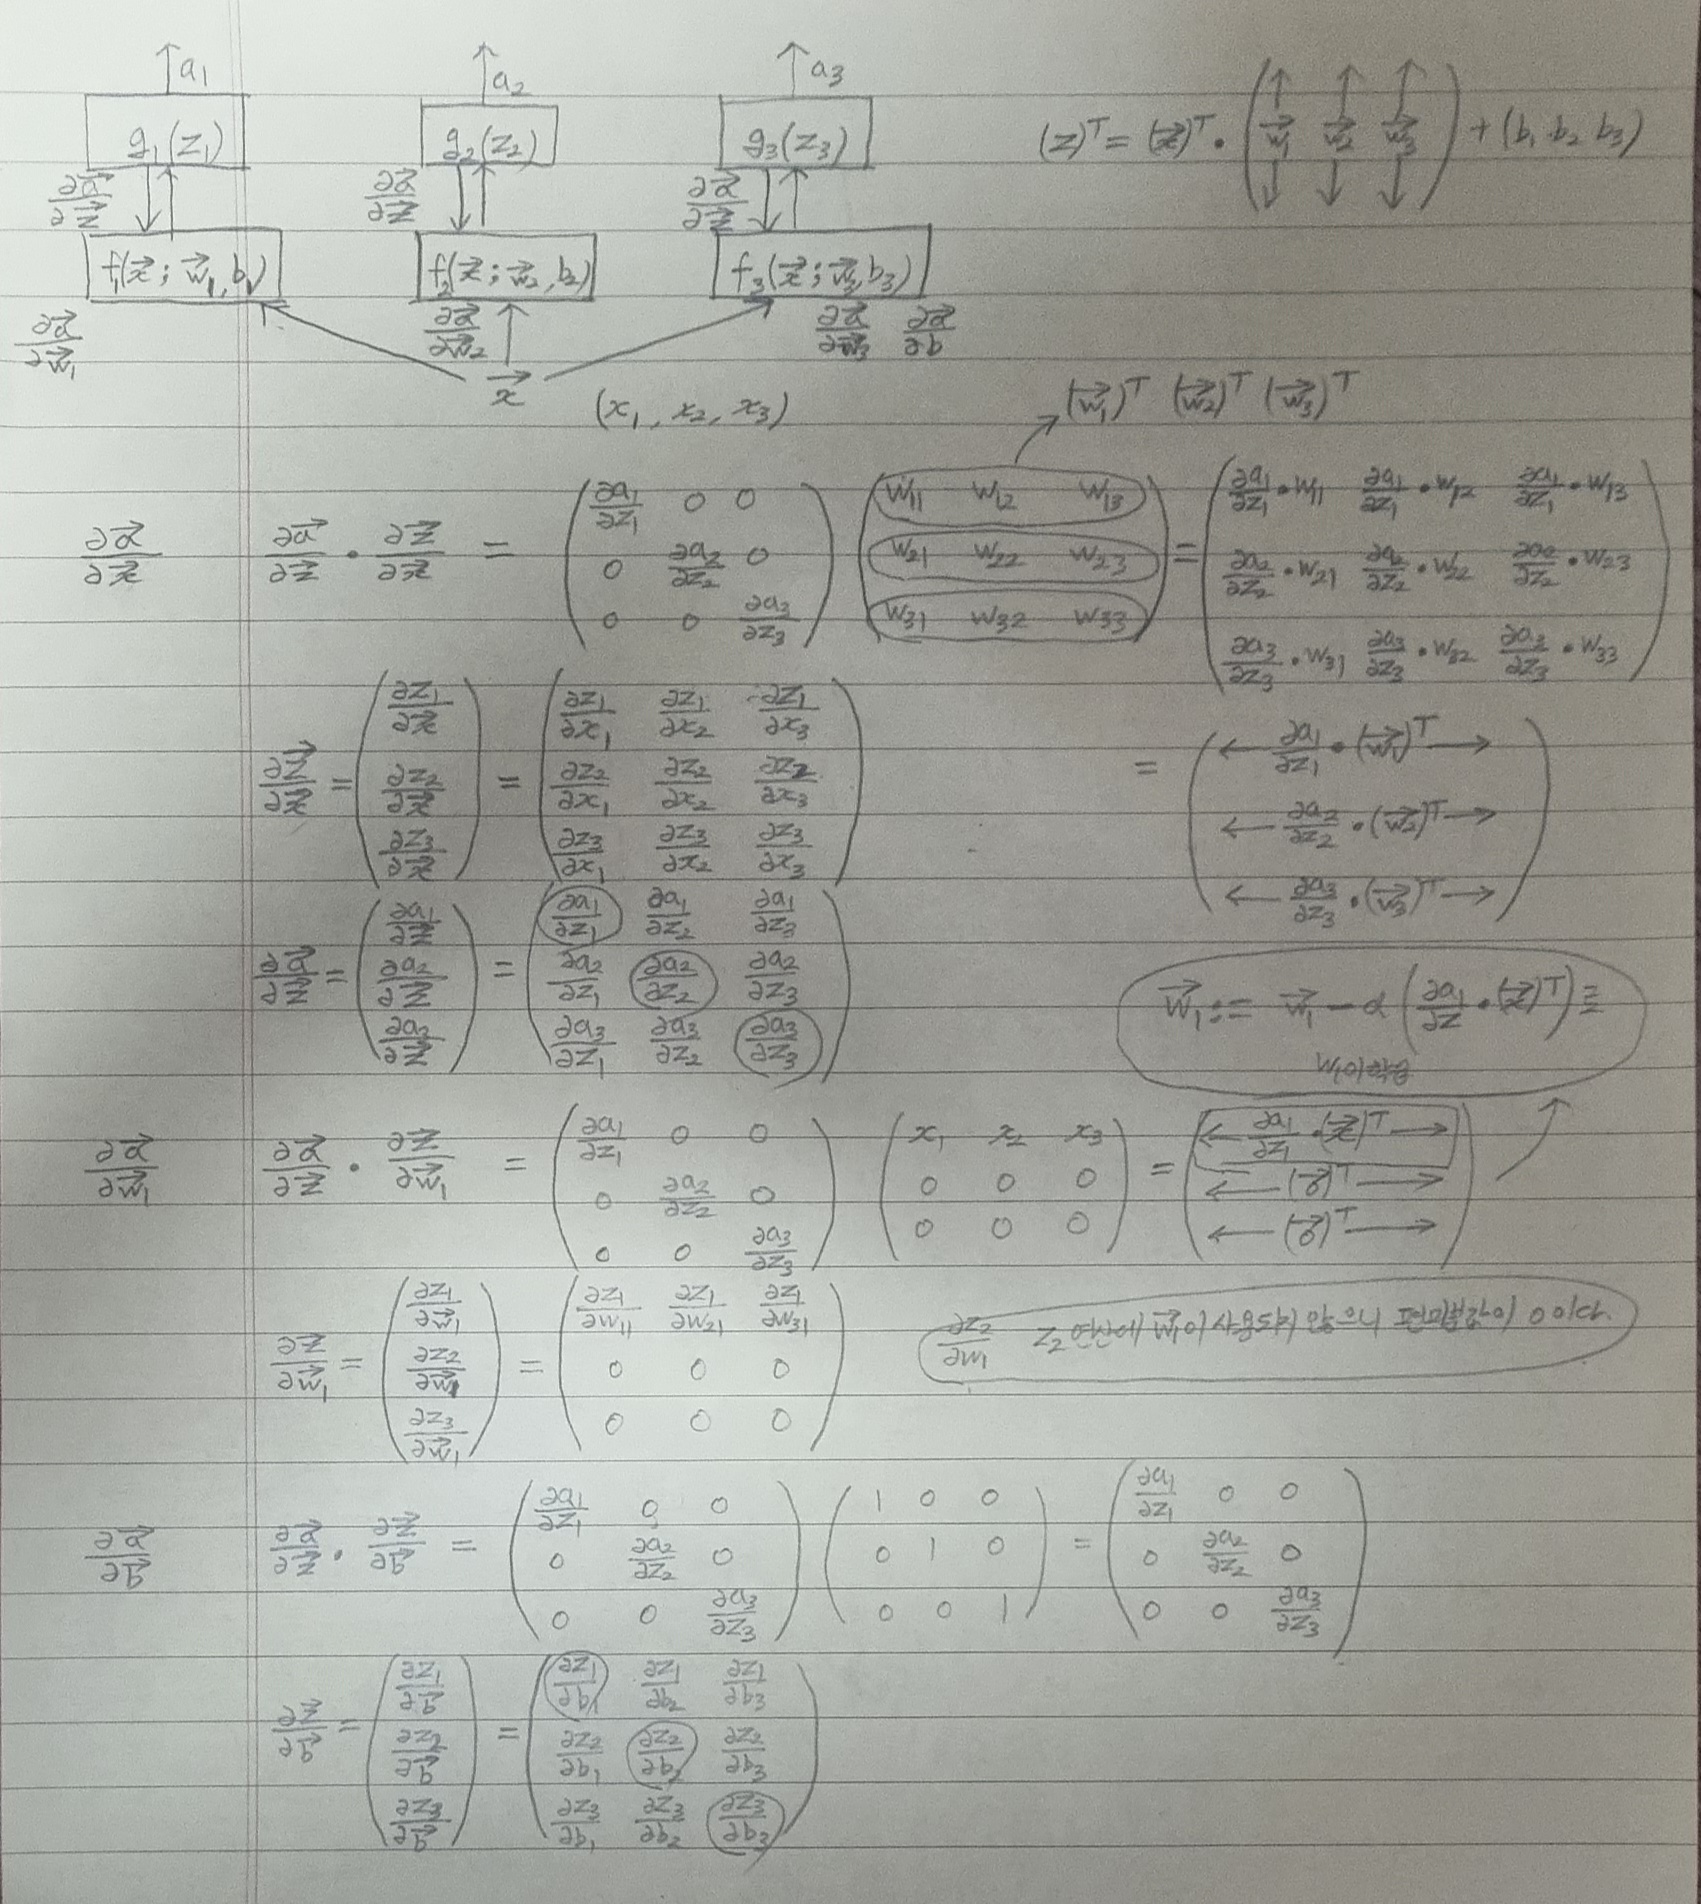 a₁ a₂ a₃
g₁(z₁) g₂(z₂) g₃(z₃)
(z)ᵀ = (x⃗)ᵀ · (w⃗₁ w⃗₂ w⃗₃) + (b₁ b₂ b₃)
∂a⃗/∂z⃗ ∂a⃗/∂z⃗ ∂a⃗/∂z⃗
f₁(x⃗; w⃗₁, b₁) f₂(x⃗; w⃗₂, b₂) f₃(x⃗; w⃗₃, b₃)
∂a⃗/∂w⃗₁ ∂a⃗/∂w⃗₂ ∂a⃗/∂w⃗₃ ∂a⃗/∂b
x⃗ (x₁, x₂, x₃)
(w⃗₁)ᵀ (w⃗₂)ᵀ (w⃗₃)ᵀ
∂a⃗/∂x⃗ ∂a⃗/∂z⃗ · ∂z⃗/∂x⃗ = (∂a₁/∂z₁ 0 0 ; 0 ∂a₂/∂z₂ 0 ; 0 0 ∂a₃/∂z₃) (w₁₁ w₁₂ w₁₃ ; w₂₁ w₂₂ w₂₃ ; w₃₁ w₃₂ w₃₃) = (∂a₁/∂z₁·w₁₁ ∂a₁/∂z₁·w₁₂ ∂a₁/∂z₁·w₁₃ ; ∂a₂/∂z₂·w₂₁ ∂a₂/∂z₂·w₂₂ ∂a₂/∂z₂·w₂₃ ; ∂a₃/∂z₃·w₃₁ ∂a₃/∂z₃·w₃₂ ∂a₃/∂z₃·w₃₃)
∂z⃗/∂x⃗ = (∂z₁/∂x⃗ ; ∂z₂/∂x⃗ ; ∂z₃/∂x⃗) = (∂z₁/∂x₁ ∂z₁/∂x₂ ∂z₁/∂x₃ ; ∂z₂/∂x₁ ∂z₂/∂x₂ ∂z₂/∂x₃ ; ∂z₃/∂x₁ ∂z₃/∂x₂ ∂z₃/∂x₃)
= (← ∂a₁/∂z₁·(w⃗₁)ᵀ → ; ← ∂a₂/∂z₂·(w⃗₂)ᵀ → ; ← ∂a₃/∂z₃·(w⃗₃)ᵀ →)
∂a⃗/∂z⃗ = (∂a₁/∂z⃗ ; ∂a₂/∂z⃗ ; ∂a₃/∂z⃗) = (∂a₁/∂z₁ ∂a₁/∂z₂ ∂a₁/∂z₃ ; ∂a₂/∂z₁ ∂a₂/∂z₂ ∂a₂/∂z₃ ; ∂a₃/∂z₁ ∂a₃/∂z₂ ∂a₃/∂z₃)
w⃗₁ := w⃗₁ − α(∂a₁/∂z·(x⃗)ᵀ)로
w₁이 학습
∂a⃗/∂w⃗₁ ∂a⃗/∂z⃗ · ∂z⃗/∂w⃗₁ = (∂a₁/∂z₁ 0 0 ; 0 ∂a₂/∂z₂ 0 ; 0 0 ∂a₃/∂z₃) (x₁ x₂ x₃ ; 0 0 0 ; 0 0 0) = (← ∂a₁/∂z₁·(x⃗)ᵀ → ; ← (0⃗)ᵀ → ; ← (0⃗)ᵀ →)
∂z⃗/∂w⃗₁ = (∂z₁/∂w⃗₁ ; ∂z₂/∂w⃗₁ ; ∂z₃/∂w⃗₁) = (∂z₁/∂w₁₁ ∂z₁/∂w₂₁ ∂z₁/∂w₃₁ ; 0 0 0 ; 0 0 0)
∂z₂/∂w₁ z₂ 연산에 w⃗₁이 사용되지 않으니 편미분값이 0이다.
∂a⃗/∂b⃗ ∂a⃗/∂z⃗ · ∂z⃗/∂b⃗ = (∂a₁/∂z₁ 0 0 ; 0 ∂a₂/∂z₂ 0 ; 0 0 ∂a₃/∂z₃) (1 0 0 ; 0 1 0 ; 0 0 1) = (∂a₁/∂z₁ 0 0 ; 0 ∂a₂/∂z₂ 0 ; 0 0 ∂a₃/∂z₃)
∂z⃗/∂b⃗ = (∂z₁/∂b⃗ ; ∂z₂/∂b⃗ ; ∂z₃/∂b⃗) = (∂z₁/∂b₁ ∂z₁/∂b₂ ∂z₁/∂b₃ ; ∂z₂/∂b₁ ∂z₂/∂b₂ ∂z₂/∂b₃ ; ∂z₃/∂b₁ ∂z₃/∂b₂ ∂z₃/∂b₃)